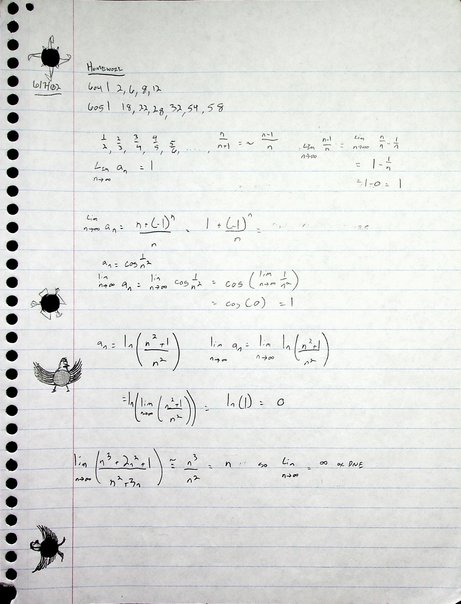 Homework
6/7/02
604 | 2, 6, 8, 12
605 | 18, 22, 28, 32, 54, 58
1/2, 2/3, 3/4, 4/5, 5/6, ... n/n+1 = ~ n-1/n Lim n→∞ n-1/n = lim n→∞ n/n - 1/n
Lim n→∞ an = 1 = 1 - 1/n
= 1-0 = 1
lim n→∞ an = n+(-1)^n / n 1 + (-1)^n / n =
an = cos 1/n²
lim n→∞ an = lim n→∞ cos 1/n² = cos (lim n→∞ 1/n²)
= cos (0) = 1
an = ln (n²+1 / n²) lim n→∞ an = lim n→∞ ln (n²+1 / n²)
= ln (lim n→∞ (n²+1 / n²)) = ln (1) = 0
lim n→∞ (n³+2n²+1 / n²+3n) ≅ n³/n² = n so Lim n→∞ = ∞ or DNE